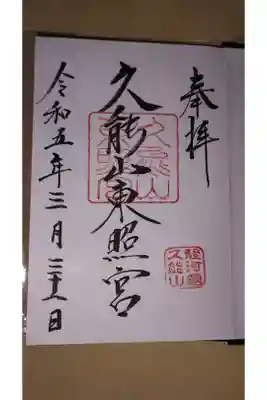 奉拝
久能山東照宮
令和五年三月二十八日
駿河國
久能山